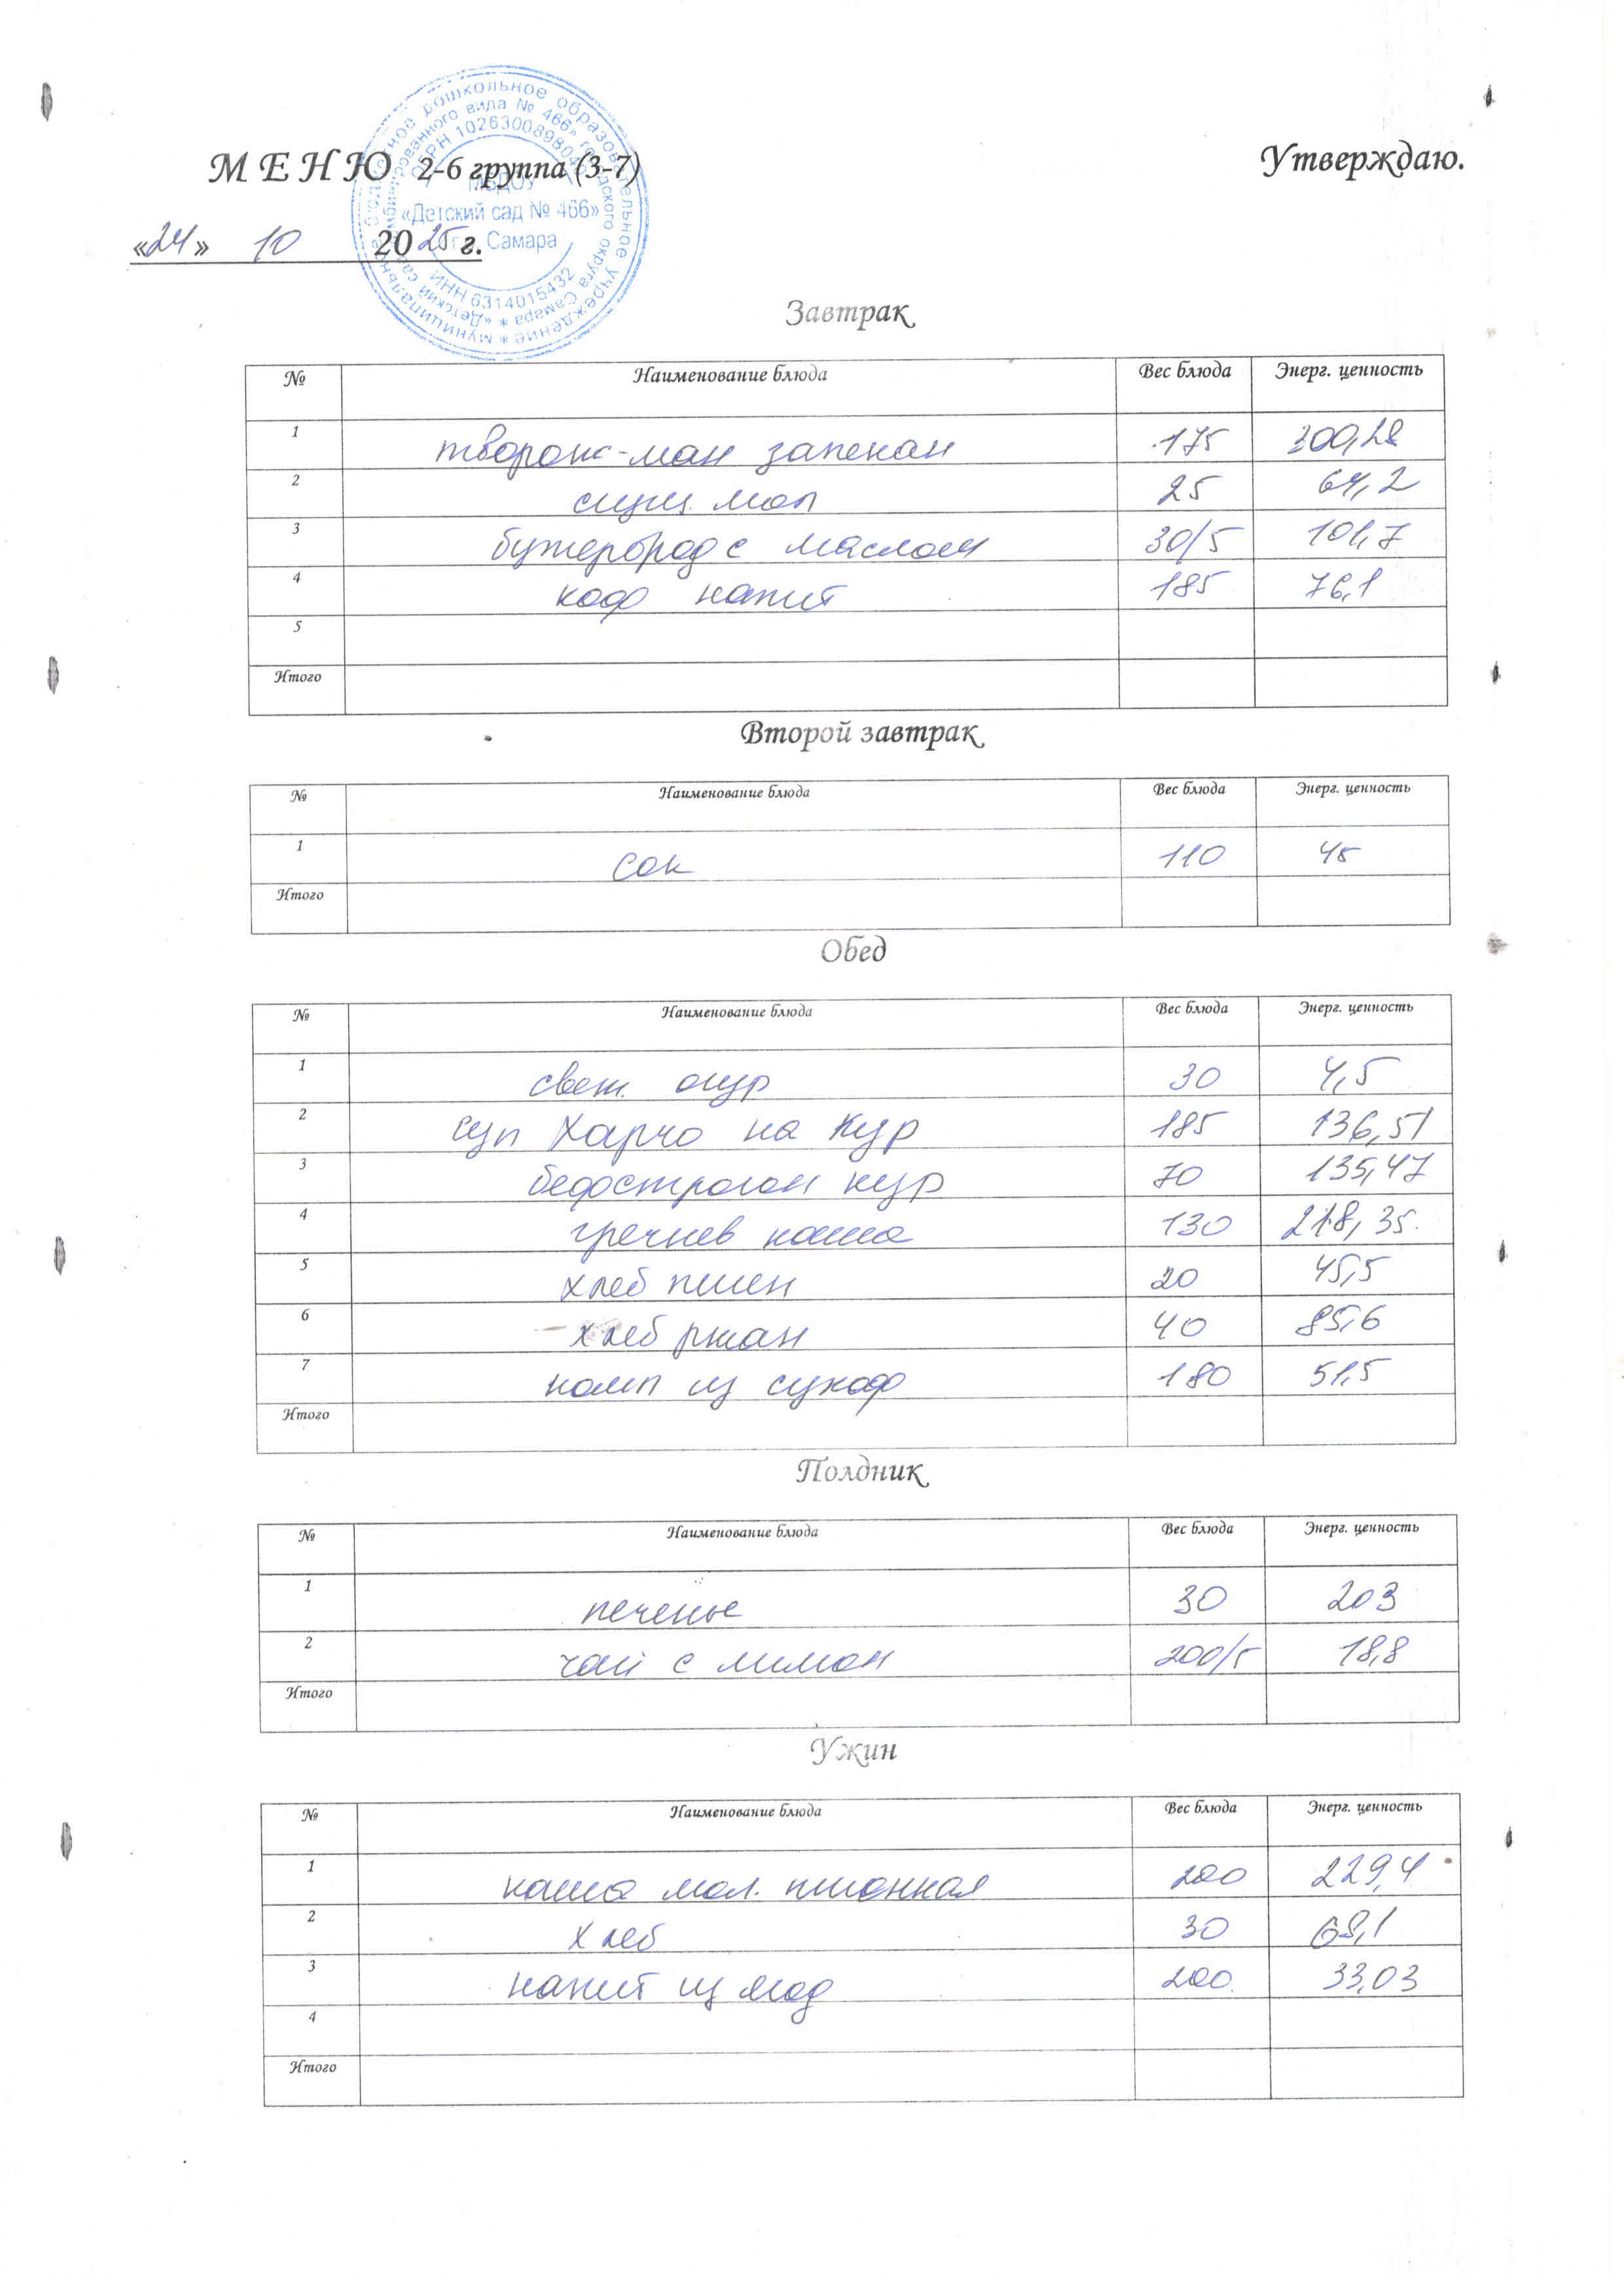 М Е Н Ю 2-6 группа (3-7)
Утверждаю.
«24» 10 2025 г.
муниципальное бюджетное дошкольное образовательное учреждение * «Детский сад комбинированного вида № 466» городского округа Самара *
ОГРН 10263008980
МБДОУ
«Детский сад № 466»
г. Самара
ИНН 6314015432
Завтрак
№ Наименование блюда Вес блюда Энерг. ценность
1 творож-ман запекан 175 300,28
2 сгущ. мол 25 64,2
3 бутерброд с маслом 30/5 101,7
4 коф напит 185 76,1
5
Итого
Второй завтрак
№ Наименование блюда Вес блюда Энерг. ценность
1 сок 110 45
Итого
Обед
№ Наименование блюда Вес блюда Энерг. ценность
1 свеж. огур 30 4,5
2 суп Харчо на кур 185 136,51
3 бефстроган кур 70 135,47
4 гречнев каша 130 218,35
5 хлеб пшен 20 45,5
6 хлеб ржан 40 85,6
7 комп из сухоф 180 51,5
Итого
Полдник
№ Наименование блюда Вес блюда Энерг. ценность
1 печенье 30 203
2 чай с лимон 200/5 18,8
Итого
Ужин
№ Наименование блюда Вес блюда Энерг. ценность
1 каша мол. пшонная 200 229,4
2 хлеб 30 68,1
3 напит из ягод 200 33,03
4
Итого